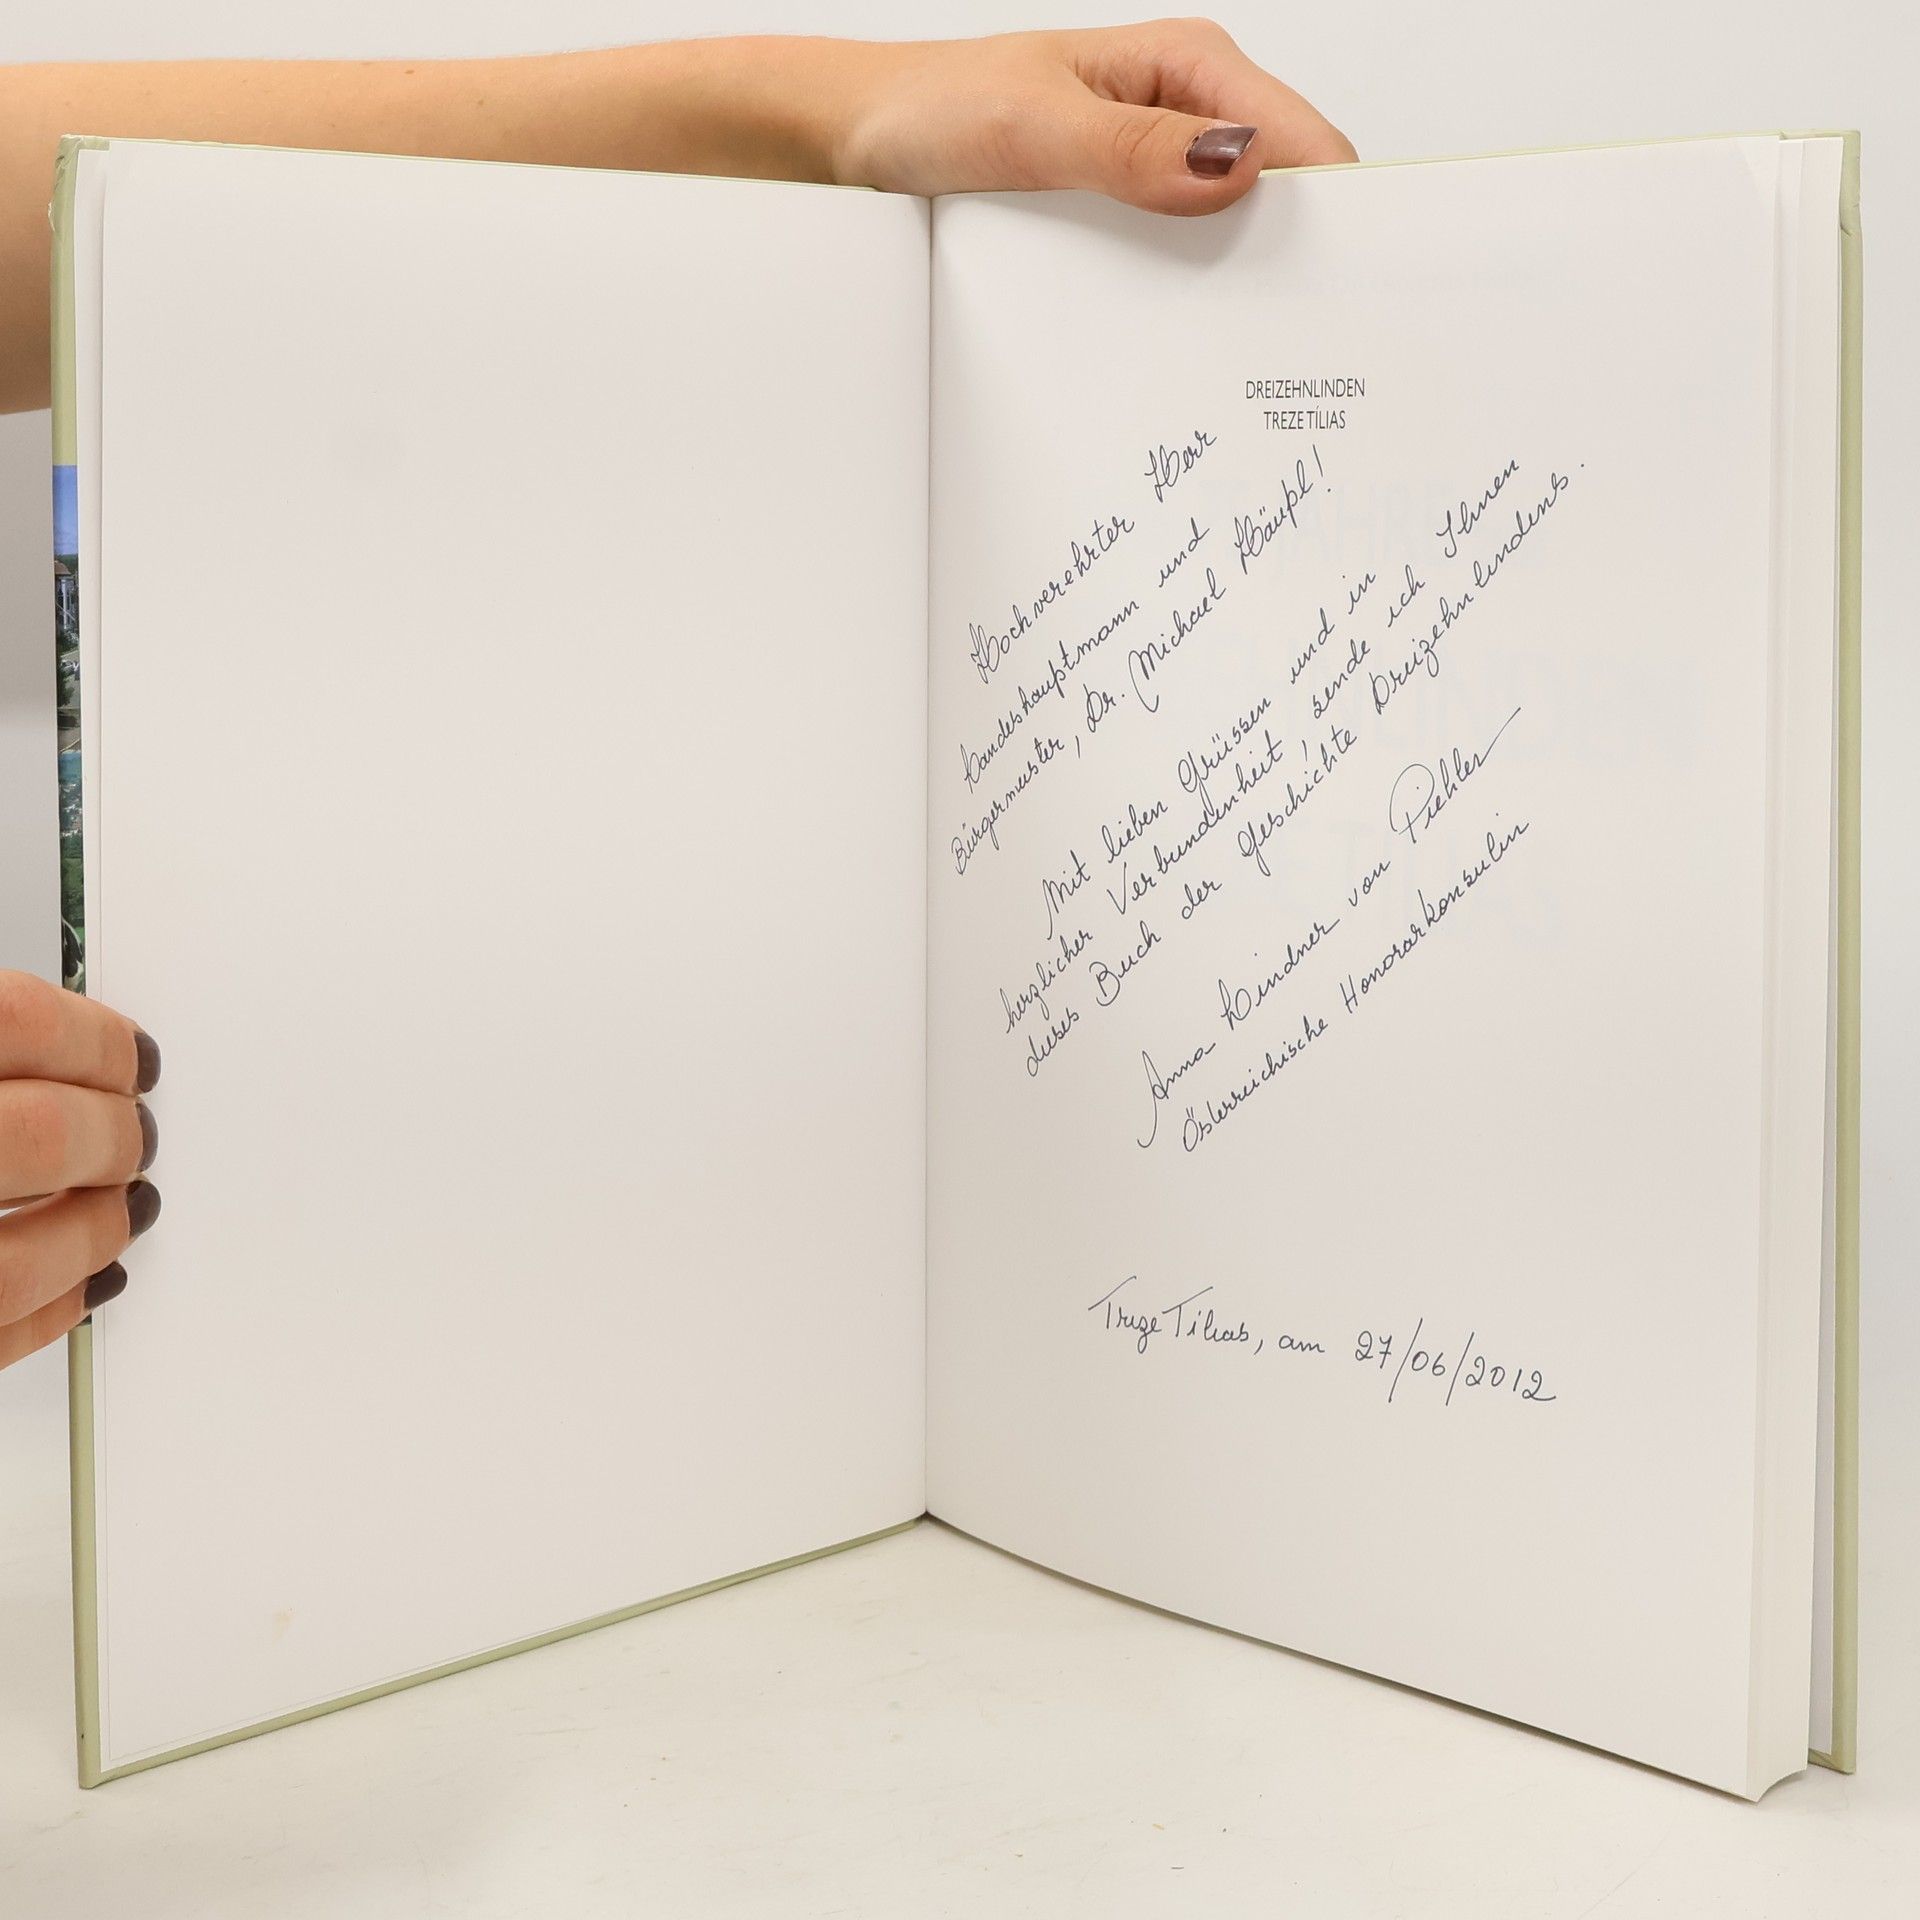 DREIZEHNLINDEN
TREZE TÍLIAS
Hochverehrter Herr
Landeshauptmann und
Bürgermeister, Dr. Michael Häupl!
Mit lieben Grüssen und in
herzlicher Verbundenheit, sende ich Ihnen
dieses Buch der Geschichte Dreizehnlindens.
Anna Lindner von Pichler
Österreichische Honorarkonsulin
Treze Tílias, am 27/06/2012